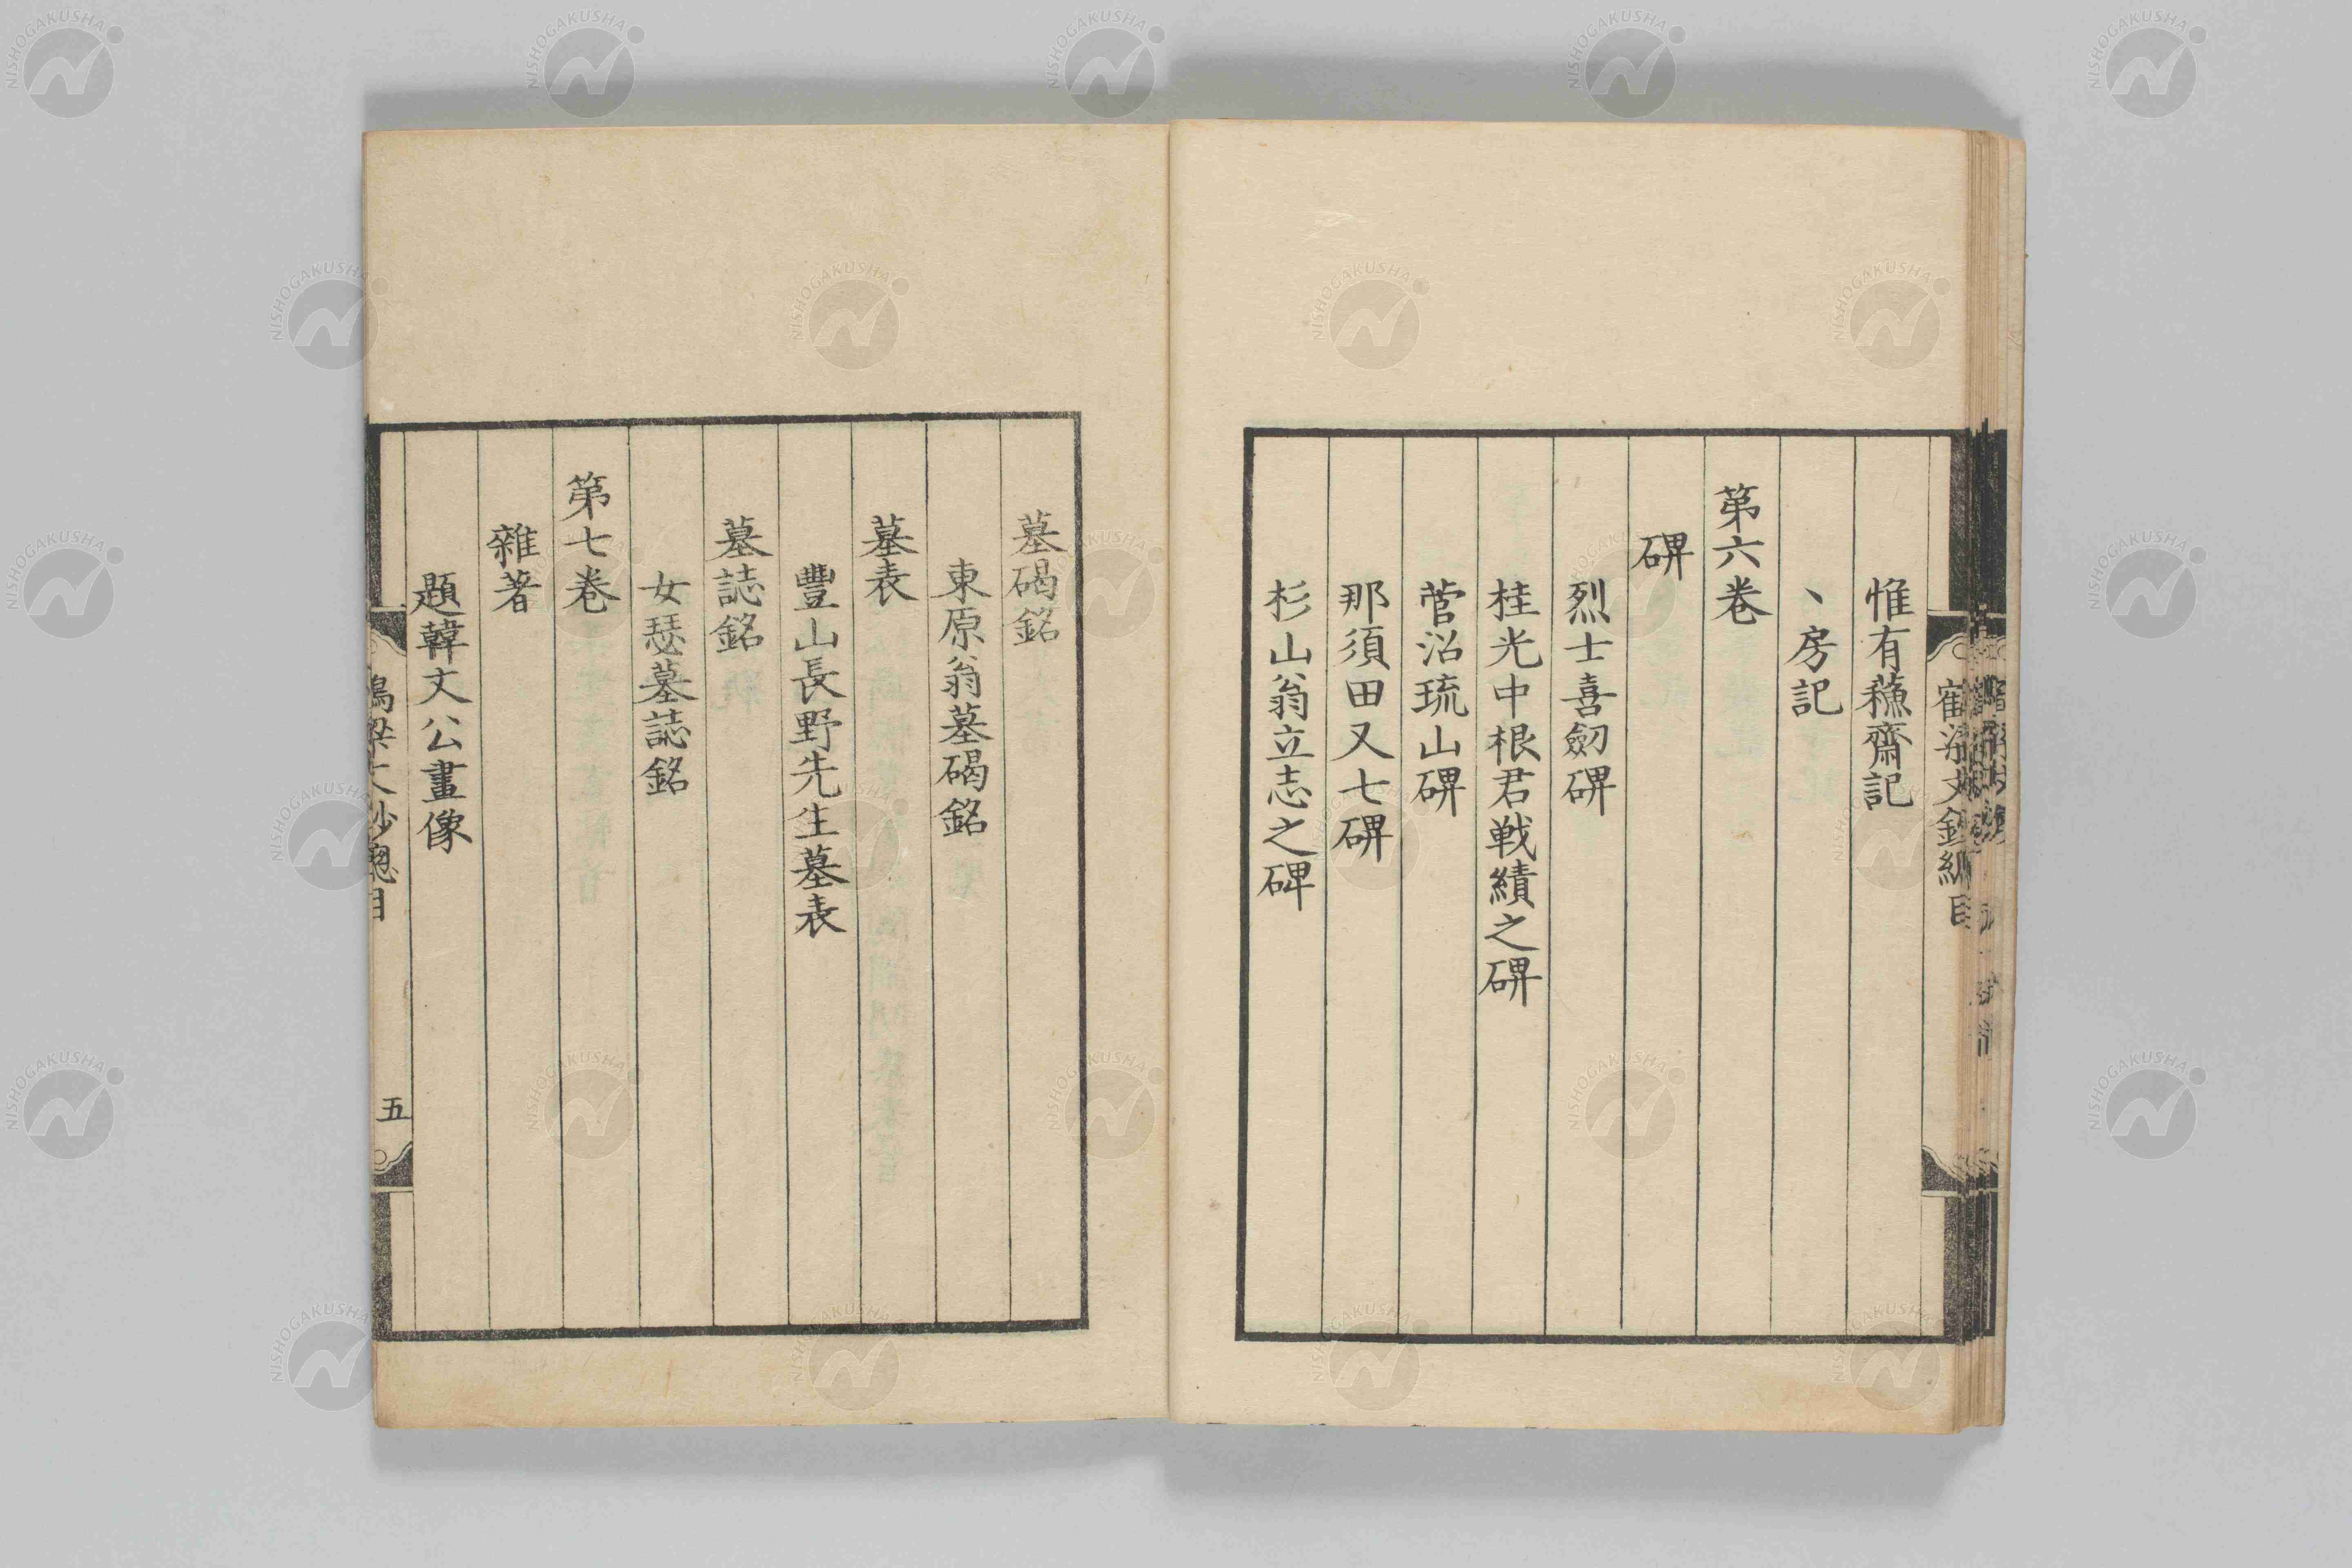 惟有䕨齋記
、房記
第六卷
碑
烈士喜劒碑
桂光中根君戦績之碑
菅沼琉山碑
那須田又七碑
杉山翁立志之碑
墓碣銘
東原翁墓碣銘
墓表
豐山長野先生墓表
墓誌銘
女瑟墓誌銘
第七卷
雜著
題韓文公畫像
五
NISHOGAKUSHA